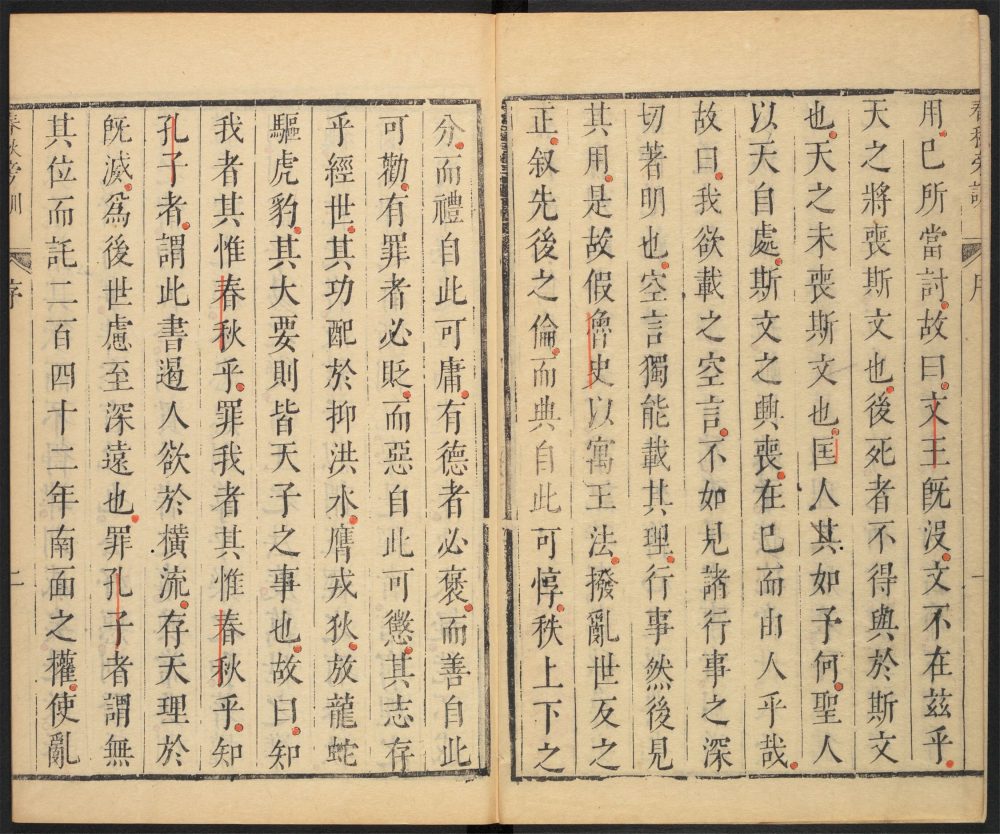 春秋旁訓 序 一
用已所當討故曰文王旣沒文不在茲乎
天之將喪斯文也後死者不得與於斯文
也天之未喪斯文也匡人其如予何聖人
以天自處斯文之興喪在已而由人乎哉
故曰我欲載之空言不如見諸行事之深
切著明也空言獨能載其理行事然後見
其用是故假魯史以寓王法撥亂世反之
正叙先後之倫而典自此可惇秩上下之
分而禮自此可庸有德者必褒而善自此
可勸有罪者必貶而惡自此可懲其志存
乎經世其功配於抑洪水膺戎狄放龍蛇
驅虎豹其大要則皆天子之事也故曰知
我者其惟春秋乎罪我者其惟春秋乎知
孔子者謂此書遏人欲於橫流存天理於
旣滅爲後世慮至深遠也罪孔子者謂無
其位而託二百四十二年南面之權使亂
春秋旁訓 序 二